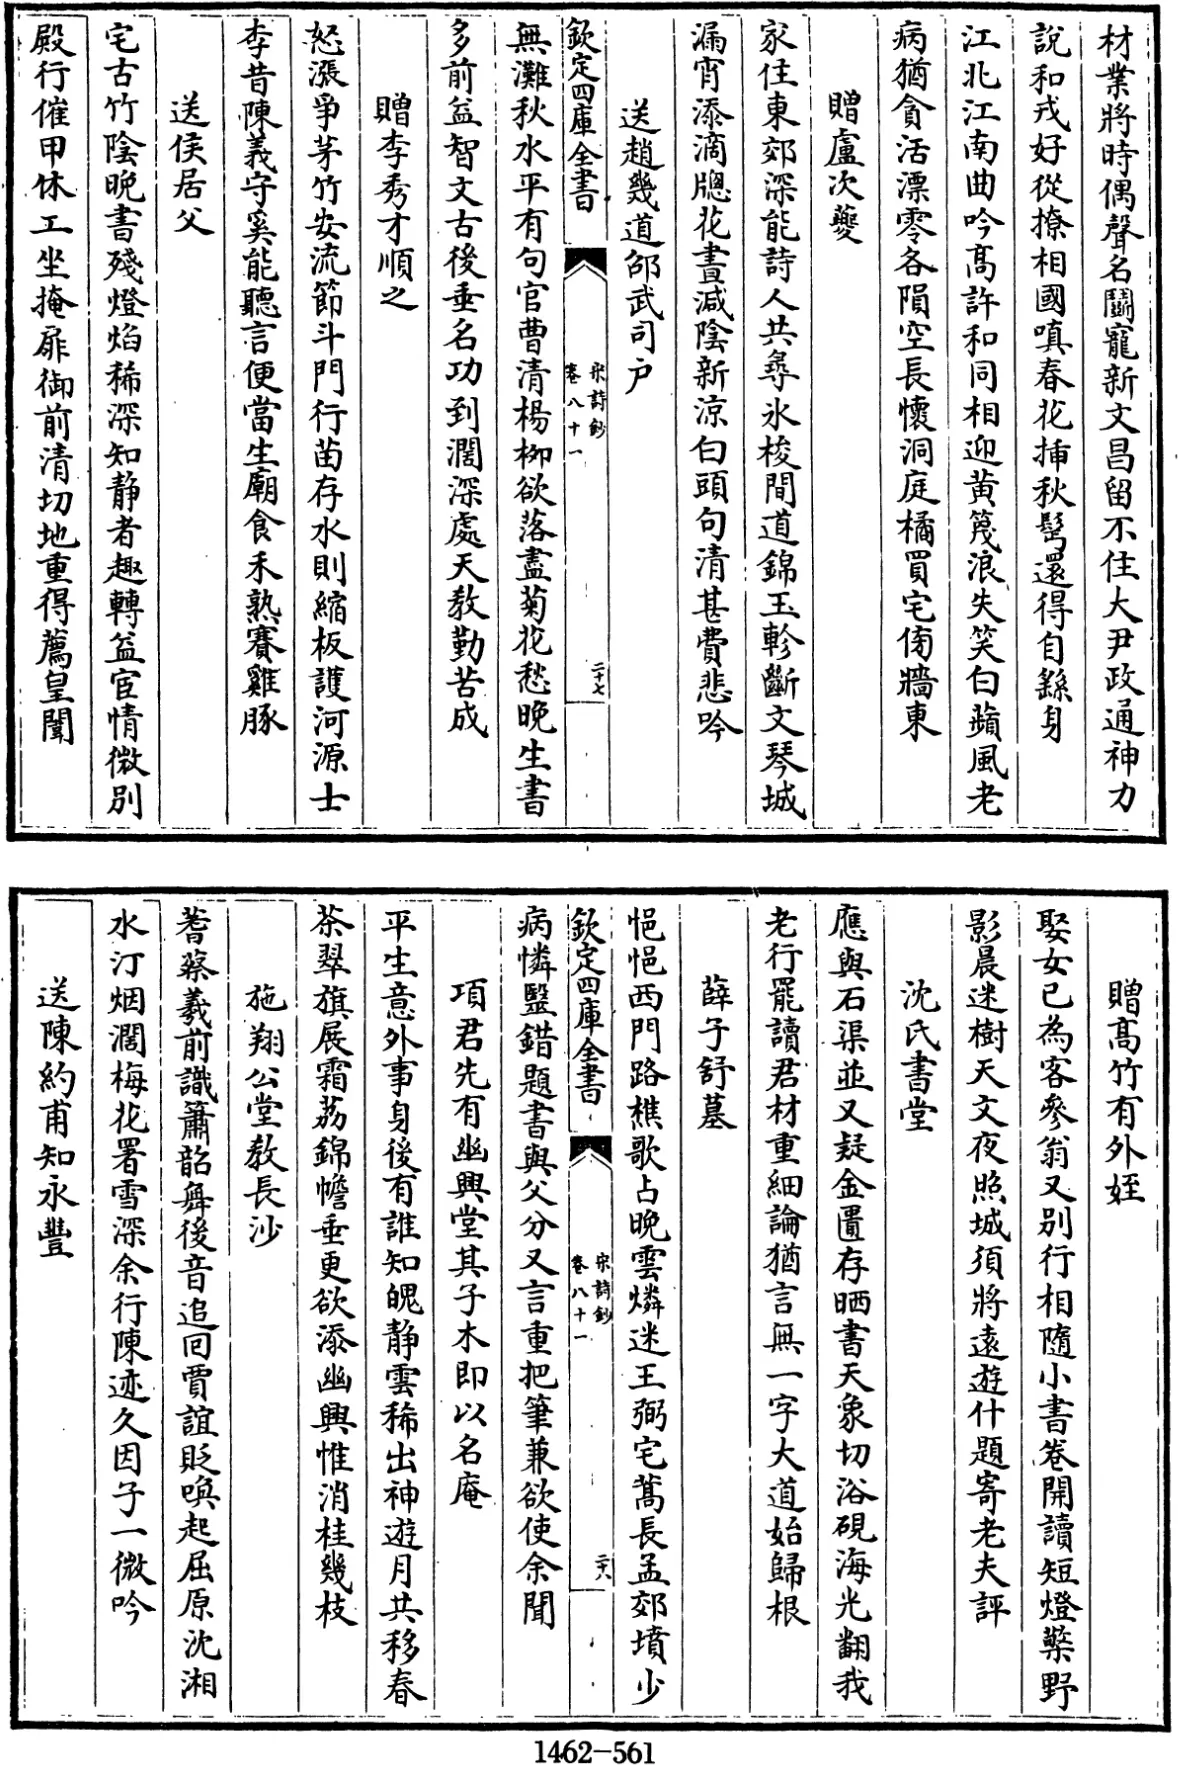 材業將時偶聲名鬭寵新文昌留不住大尹政通神力
說和戎好從撩相國嗔春花揷秋髩還得自繇身
江北江南曲吟髙許和同相迎黄篾浪失笑白蘋風老
病猶貪活漂零各隕空長懷洞庭橘買宅傍牆東
贈盧次夔
家住東郊深能詩人共尋氷梭間道錦玉軫斷文琴城
漏宵添滴牕花晝減陰新涼白頭句清甚費悲吟
送趙幾道邵武司户
欽定四庫全書
宋詩鈔
卷八十一
二十七
無灘秋水平有句官曹清楊柳欲落盡菊花愁晚生書
多前益智文古後垂名功到濶深處天教勤苦成
贈李秀才順之
怒漲爭茅竹安流節斗門行苗存水則縮板護河源士
李昔陳義守奚能聽言便當生廟食禾熟賽雞豚
送侯居父
宅古竹陰晚書殘燈焰稀深知靜者趣轉益宦情微別
殿行催甲休工坐掩扉御前清切地重得薦皇闈
贈髙竹有外姪
娶女已為客參翁又別行相隨小書卷開讀短燈檠野
影晨迷樹天文夜照城須將遠遊什題寄老夫評
沈氏書堂
應與石渠並又疑金匱存晒書天象切浴硯海光翻我
老行罷讀君材重細論猶言無一字大道始歸根
薛子舒墓
悒悒西門路樵歌占晚雲燐迷王弼宅蒿長孟郊墳少
欽定四庫全書
宋詩鈔
卷八十一
二十八
病憐毉錯題書與父分又言重把筆兼欲使余聞
項君先有幽興堂其子木即以名庵
平生意外事身後有誰知魄靜雲稀出神遊月共移春
茶翠旗展霜荔錦幨垂更欲添幽興惟消桂幾枝
施翔公堂教長沙
蓍蔡羲前識簫韶舜後音追回賈誼貶喚起屈原沈湘
水汀烟濶梅花署雪深余行陳迹久因子一微吟
送陳約甫知永豐
1462-561